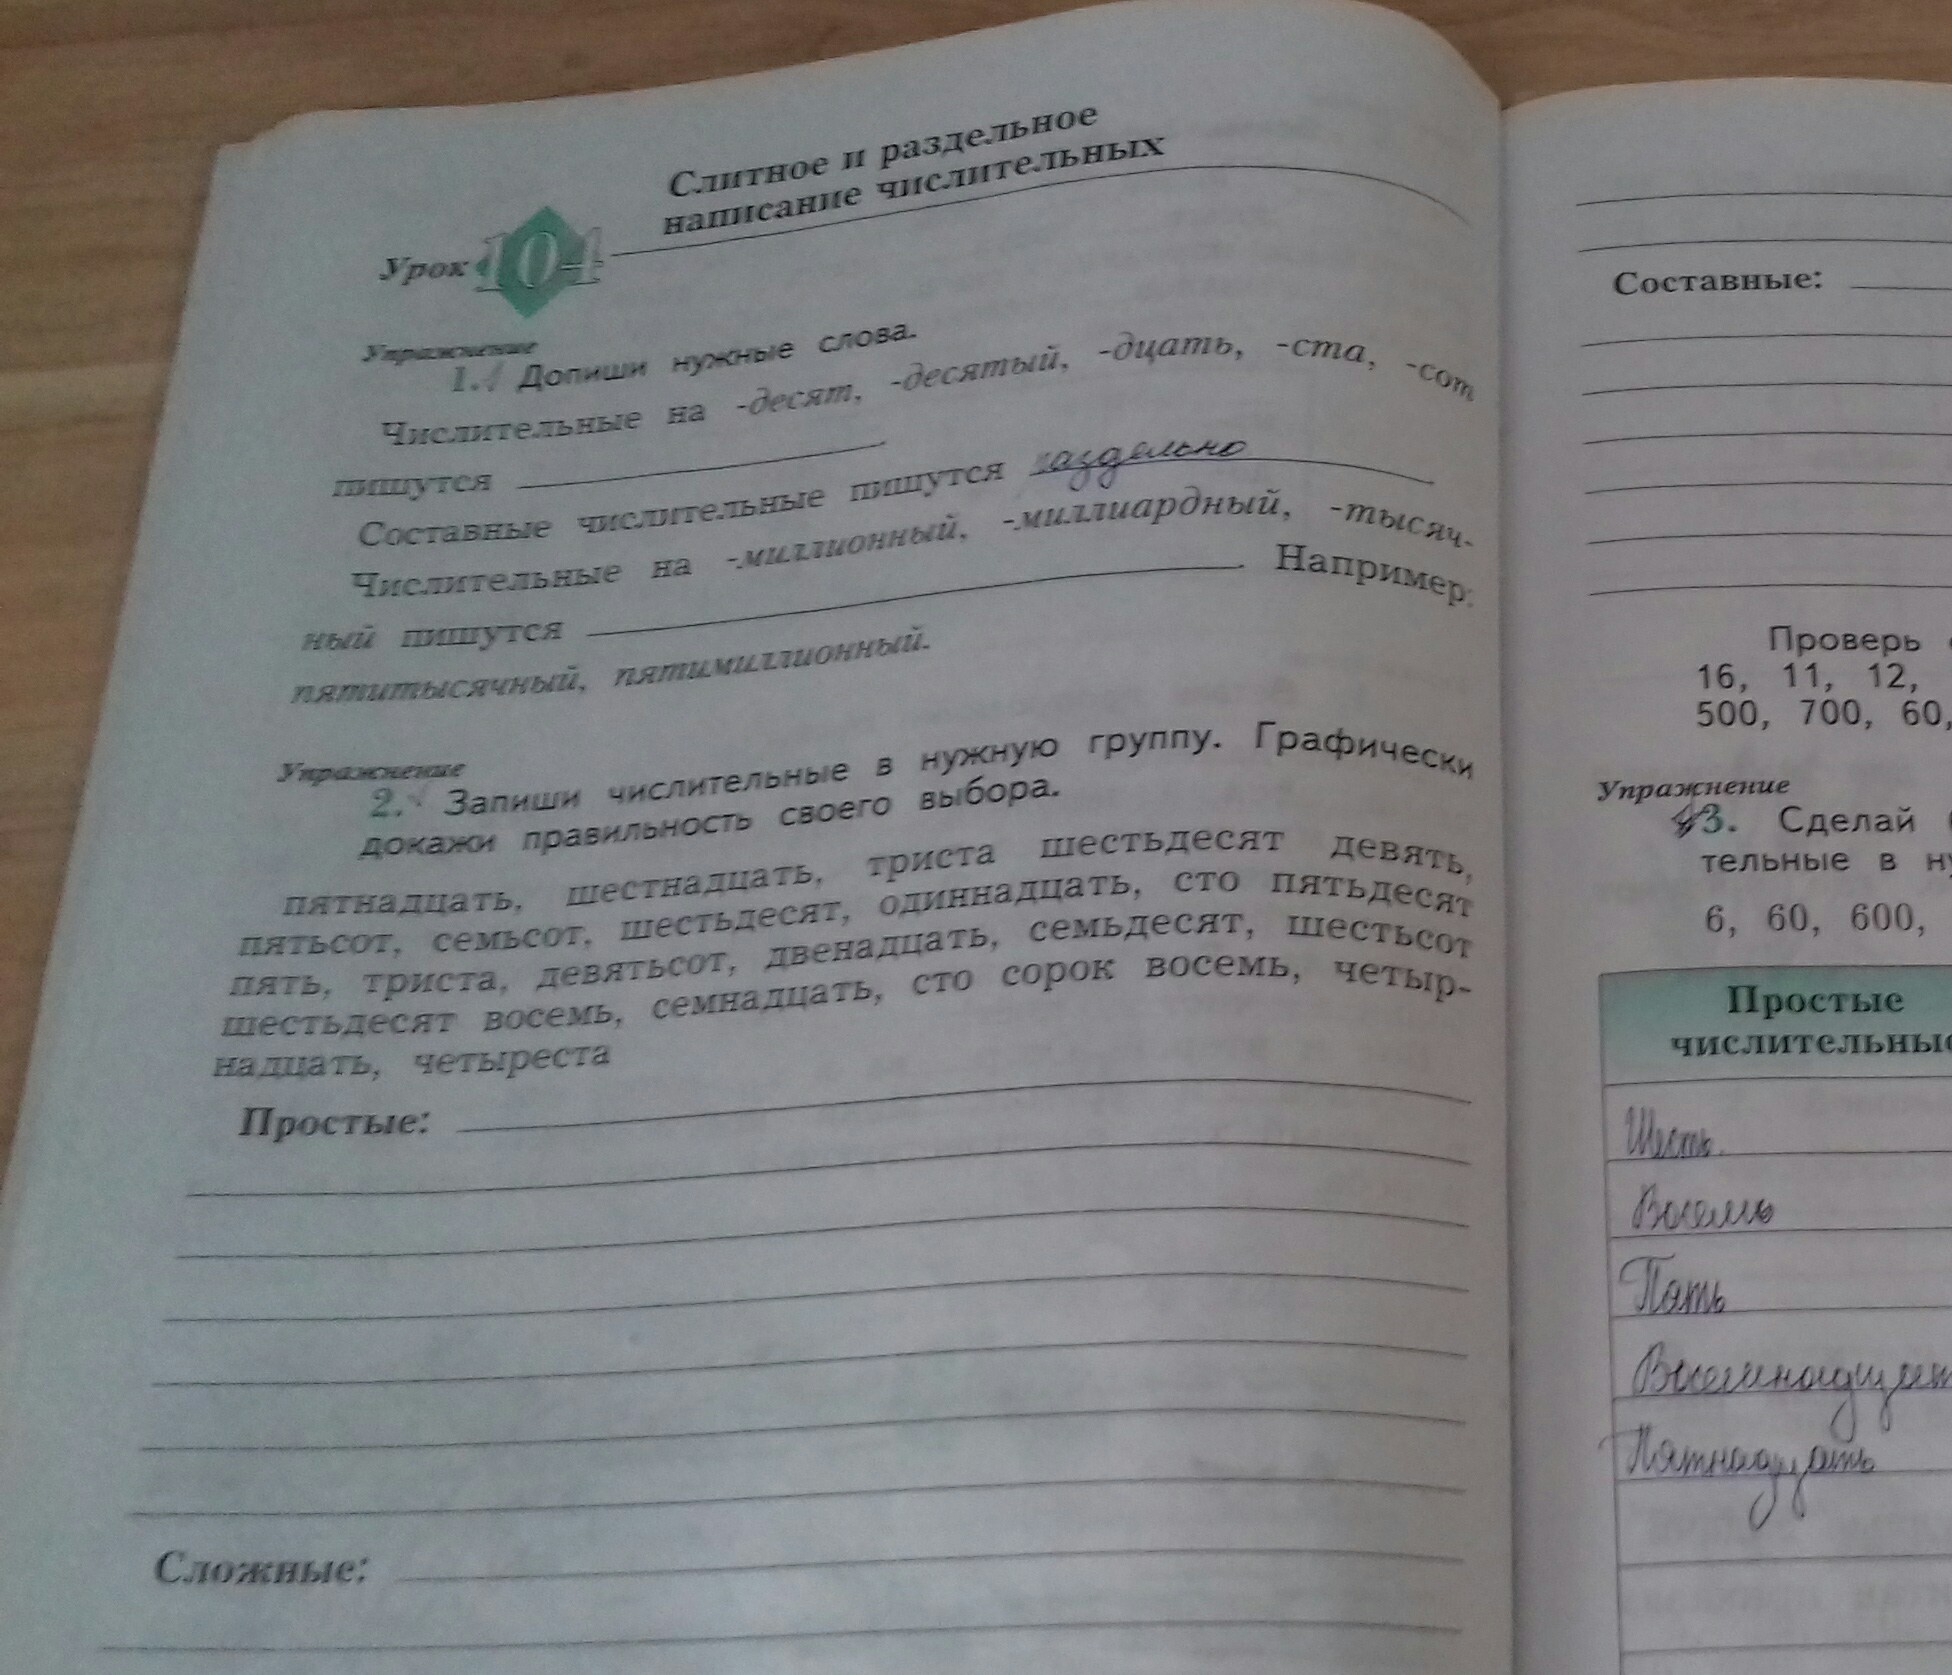 Слитное и раздельное
написание числительных
Урок 104
Упражнение
1. Допиши нужные слова.
Числительные на -десят, -десятый, -дцать, -ста, -сот
пишутся
Составные числительные пишутся раздельно
Числительные на -миллионный, -миллиардный, -тысяч-
ный пишутся . Например:
пятитысячный, пятимиллионный.
Упражнение
2. Запиши числительные в нужную группу. Графически
докажи правильность своего выбора.
пятнадцать, шестнадцать, триста шестьдесят девять,
пятьсот, семьсот, шестьдесят, одиннадцать, сто пятьдесят
пять, триста, девятьсот, двенадцать, семьдесят, шестьсот
шестьдесят восемь, семнадцать, сто сорок восемь, четыр-
надцать, четыреста
Простые:
Сложные:
Составные:
Проверь
16, 11, 12,
500, 700, 60,
Упражнение
3. Сделай
тельные в
6, 60, 600,
Простые
числительные
Шесть.
Восемь
Пять
Восемнадцат
Пятнадцать